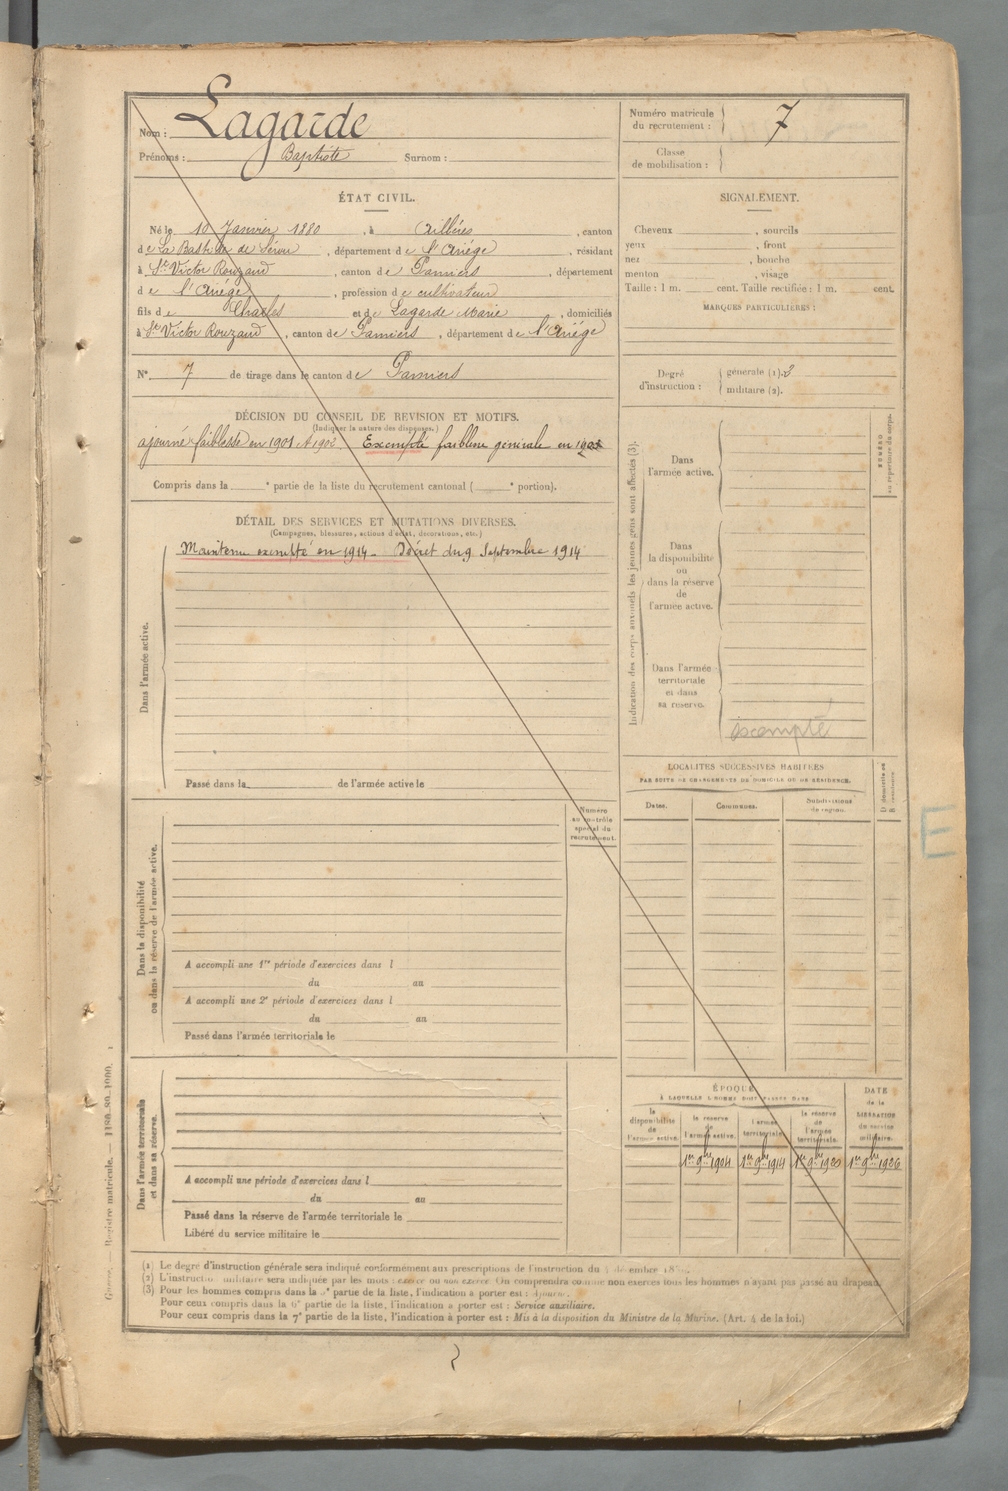 Nom : Lagarde
Prénoms : Baptiste Surnom :
Numéro matricule du recrutement : 7
Classe de mobilisation :
ÉTAT CIVIL.
Né le 10 Janvier 1880, à Aillères, canton
de La Bastide de Sérou, département de l'Ariége, résidant
à St Victor Rouzaud, canton de Pamiers, département
de l'Ariége, profession de cultivateur
fils de Charles et de Lagarde Marie, domiciliés
à St Victor Rouzaud, canton de Pamiers, département de l'Ariége
N° 7 de tirage dans le canton de Pamiers
SIGNALEMENT.
Cheveux , sourcils
yeux , front
nez , bouche
menton , visage
Taille : 1 m. cent. Taille rectifiée : 1 m. cent.
MARQUES PARTICULIÈRES :
Degré d'instruction : générale (1). 3
militaire (2).
DÉCISION DU CONSEIL DE REVISION ET MOTIFS.
(Indiquer la nature des dispenses.)
ajourné faiblesse en 1901 et 1902. Exempté faiblesse générale en
Compris dans la e partie de la liste du recrutement cantonal ( e portion).
DÉTAIL DES SERVICES ET MUTATIONS DIVERSES.
(Campagnes, blessures, actions d'éclat, décorations, etc.)
Maintenu exempté en 1914 - Décret du 9 Septembre 1914
Dans l'armée active.
Passé dans la de l'armée active le
Indication des corps auxquels les jeunes gens sont affectés (3).
Dans l'armée active.
Dans la disponibilité ou dans la réserve de l'armée active.
Dans l'armée territoriale et dans sa réserve.
exempté
NUMÉRO au répertoire du corps.
LOCALITÉS SUCCESSIVES HABITÉES
PAR SUITE DE CHANGEMENTS DE DOMICILE OU DE RÉSIDENCE.
Dates. Communes. Subdivisions de région. D domicile ou R résidence
E
Numéro au contrôle spécial du recrutement.
Dans la disponibilité ou dans la réserve de l'armée active.
A accompli une 1re période d'exercices dans l
du au
A accompli une 2e période d'exercices dans l
du au
Passé dans l'armée territoriale le
Dans l'armée territoriale et dans sa réserve.
A accompli une période d'exercices dans l
du au
Passé dans la réserve de l'armée territoriale le
Libéré du service militaire le
ÉPOQUE
À LAQUELLE L'HOMME DOIT PASSER DANS
la disponibilité de l'armée active.
la réserve de l'armée active.
l'armée territoriale.
la réserve de l'armée territoriale.
DATE de la LIBÉRATION du service militaire.
1er 9bre 1904 1er 9bre 1914 1er 9bre 1920 1er 9bre 1926
(1) Le degré d'instruction générale sera indiqué conformément aux prescriptions de l'instruction du
(2) L'instruction militaire sera indiquée par les mots : exercé ou non exercé. On comprendra comme non exercés tous les hommes n'ayant pas passé au drapeau.
(3) Pour les hommes compris dans la 5e partie de la liste, l'indication à porter est : Ajourné.
Pour ceux compris dans la 6e partie de la liste, l'indication à porter est : Service auxiliaire.
Pour ceux compris dans la 7e partie de la liste, l'indication à porter est : Mis à la disposition du Ministre de la Marine. (Art. 4 de la loi.)
Guerre. Registre matricule. —